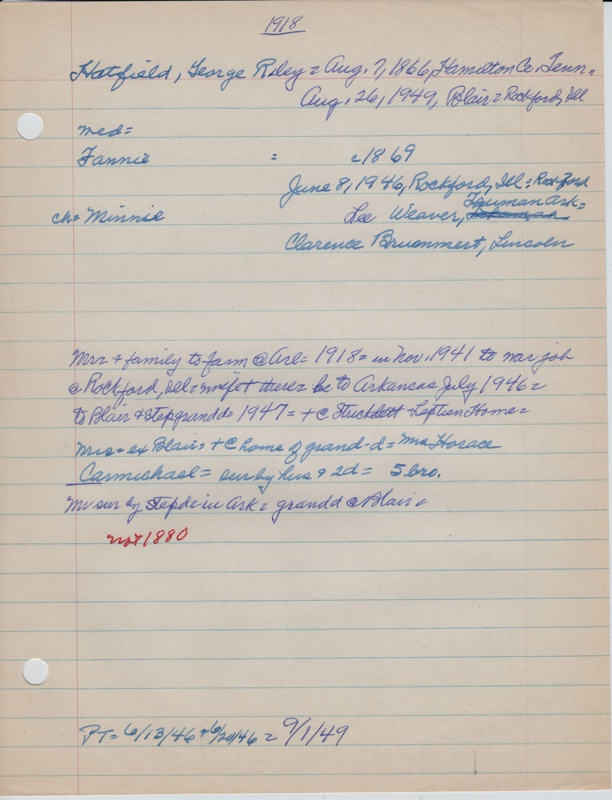 1918
Hatfield, George Riley = Aug. 7, 1866, Hamilton Co. Tenn. =
Aug. 26, 1949, Blair = Rockford, Ill
med =
Fannie = c1869
June 8, 1946, Rockford, Ill = Rockford
Truman Ark =
ch = Minnie Lee Weaver,
Clarence Bruenmert, Lincoln
Mr = & family to farm @ Arl = 1918 = in Nov. 1941 to war job
@ Rockford, Ill = wife + there = bc to Arkansas July 1946 =
to Blair & stepgrandd = 1947 = + @ Stricklett Leptien Home =
Mrs = ex Blair = + @ home of grand-d = Mrs Horace
Carmichael = sur by hus & 2d = 5 bro.
Mr sur by stepd = in Ark = grandd @ Blair =
not 1880
PT = 6/13/46 + 6/20/46 = 9/1/49